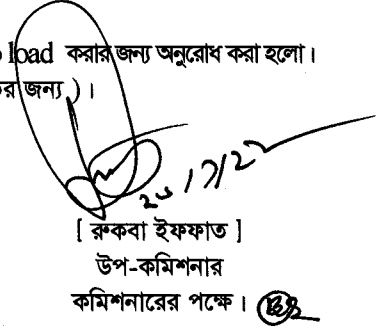 load করার জন্য অনুরোধ করা হলো।
জন্য)।
[ রুকবা ইফফাত ]
উপ-কমিশনার
কমিশনারের পক্ষে।